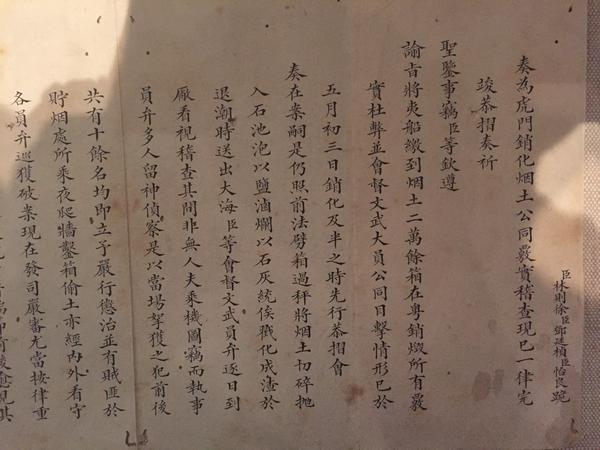 臣林則徐臣鄧廷楨臣怡良跪
奏為虎門銷化烟土公同覈實稽查現已一律完
竣恭摺奏祈
聖鑒事竊臣等欽遵
諭旨將夷船繳到烟土二萬餘箱在粵銷燬所有覈
實杜弊並會督文武大員公同目擊情形已於
五月初三日銷化及半之時先行恭摺會
奏在案嗣是仍照前法劈箱過秤將烟土切碎拋
入石池泡以鹽滷爛以石灰統俟戳化成渣於
退潮時送出大海臣等會督文武員弁逐日到
厰看視稽查其間非無人夫乘機圖竊而執事
員弁多人留神偵察是以當場拏獲之犯前後
共有十餘名均即立予嚴行懲治並有賊匪於
貯烟處所乘夜爬牆鑿箱偷土亦經內外看守
各員弁巡獲破案現在發司嚴審尤當按律重